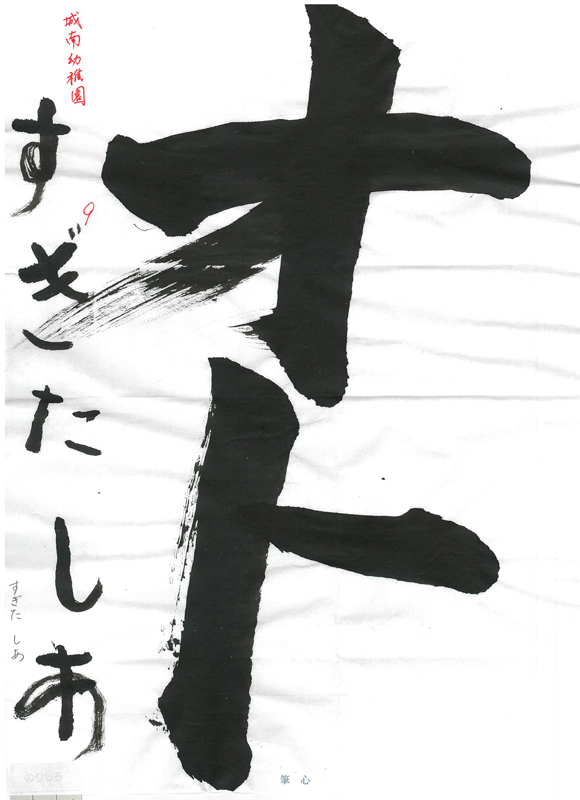 オト
城南幼稚園
すぎたしあ
すぎた しあ
のりしろ
筆心